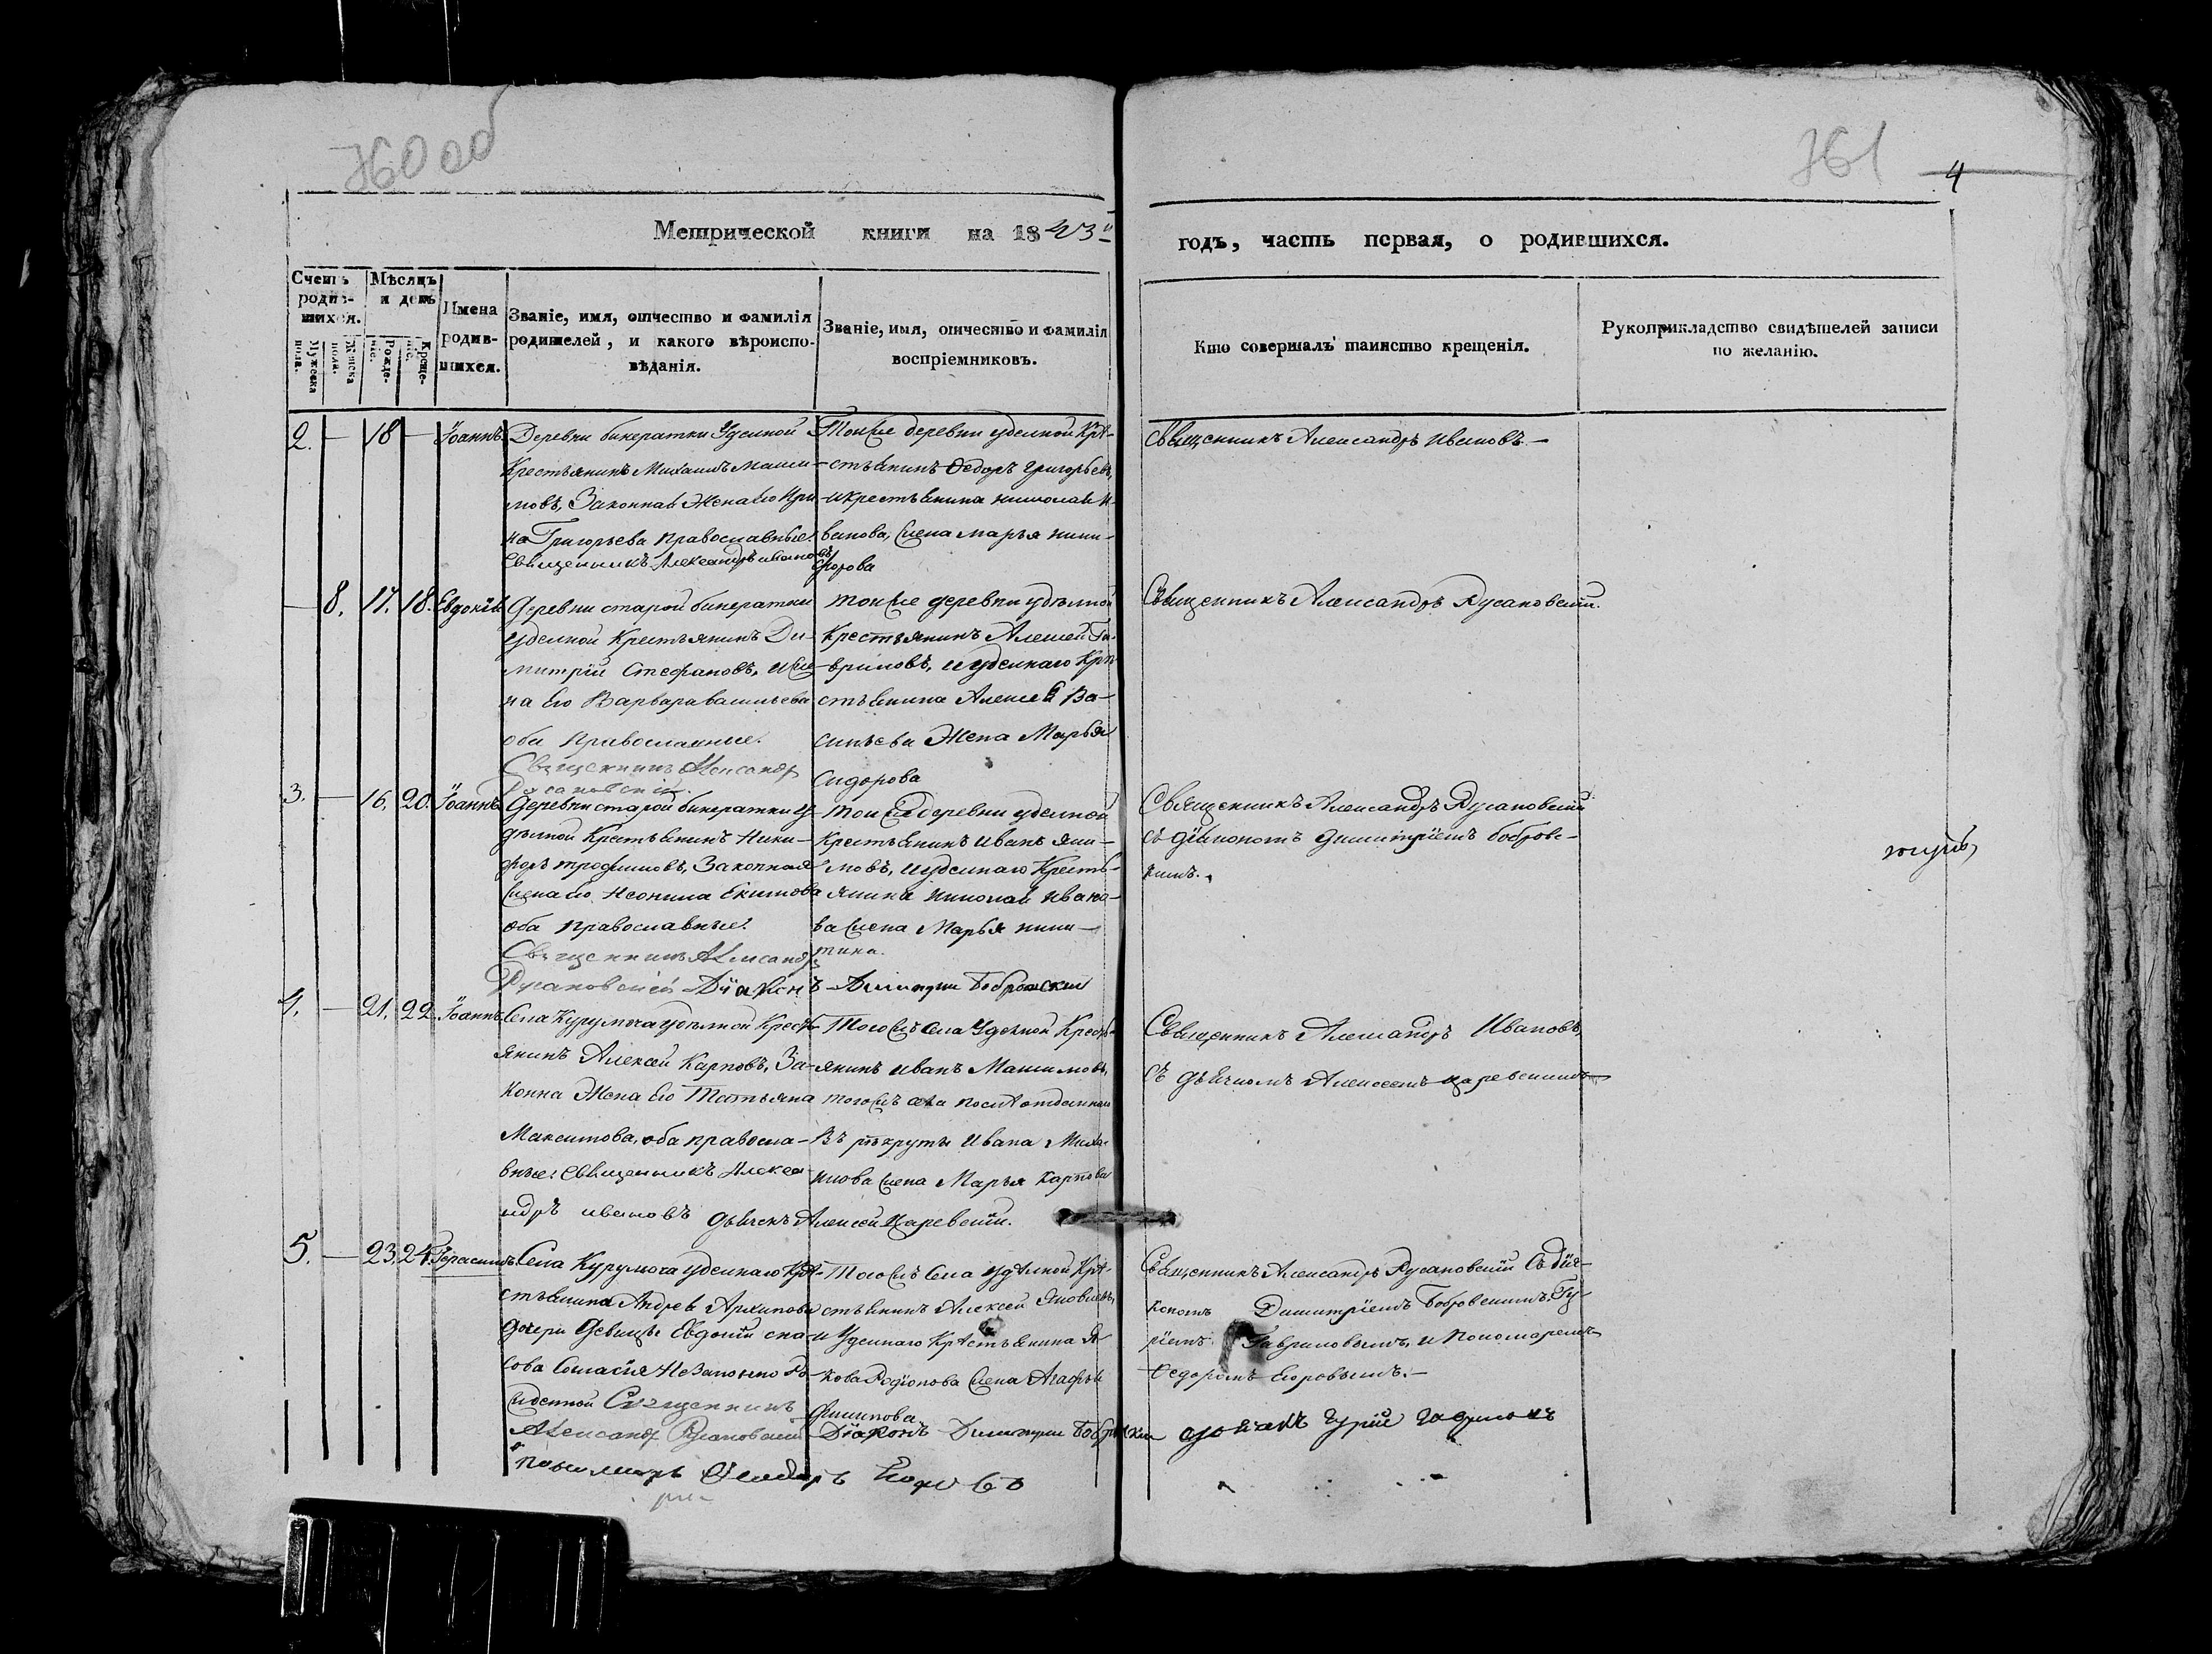 760 об
761
4
Метрической книги на 1843й
годъ, часть первая, о родившихся.
Счетъ родившихся.
Мужеска пола.
Женска пола.
Мѣсяцъ и день
Рожденіе.
Крещеніе.
Имена родившихся.
Званіе, имя, отчество и фамилія родителей, и какого вѣроисповѣданія.
Званіе, имя, отчество и фамилія воспріемниковъ.
Кто совершалъ таинство крещенія.
Рукоприкладство свидѣтелей записи по желанію.
2. — 18 — Іоаннъ.
Деревни бинератки Уделной
Крестьянинъ Михаилъ Макси-
мовъ, Законная Жена Его Ири-
на Григорьева Православные.
Священникъ Александръ ивановъ
Тойже деревни уделной Кре-
стьянинъ Ѳедоръ Григорьевъ,
и крестьянина николая И-
ванова, жена марья ники-
форова
Священникъ Александръ Ивановъ.—
— 8. 17. 18. Евдокія
Деревни старой бинератки
уделной Крестьянинъ Ди-
митрій Стефановъ, и же-
на Его Варвара васильева
оба Православные.
Священникъ Александръ
Русановскій.
тойже деревни уделной
Крестьянинъ Алексей Га-
вриловъ, и уделнаго Кре-
стьянина Алексея Ва-
сильева Жена Марья
Сидорова
Священникъ Александръ Русановскій.
3. — 16. 20. Іоаннъ
Деревни старой бинератки у-
делной Крестьянинъ Ники-
форъ трофимовъ, Законная
жена его Неонила Екимова
оба православные.
Священникъ Александръ
Русановскій Діаконъ Димитрій Бобровскій
той же деревни уделной
Крестьянинъ Иванъ яки-
мовъ, и уделнаго Кресть-
янина николая Ивано-
ва жена Марья ники-
тина.
Священникъ Александръ Русановскій
съ діакономъ димитріемъ бобров-
скимъ.
4. — 21. 22. Іоаннъ.
Села Курумоча уделной Кресть-
янинъ Алексей Карповъ, За-
конна Жена Его Татьяна
Максимова, оба правосла-
вные. Священникъ Алекса-
ндръ ивановъ дьячекъ Алексей Царевскій.
Тогожъ Села Уделной Кресть-
янинъ иванъ Максимовъ,
тогожъ села после отданнаго
Въ рекруты Ивана Миха-
илова жена Марья Карпова
Священникъ Александръ Ивановъ
съ дьячкомъ Алексеемъ царевскимъ
5. — 23. 24. Герасимъ.
Села Курумоча уделнаго Кре-
стьянина Андрея Архипова
дочери Девицы Евдокіи спа-
сова Согласія Незаконно Ро-
жденной Священникъ
Александръ Русановскій Діаконъ Димитрій Бобровскій дьячекъ Гурій Гавриловъ
пономарь Ѳеодоръ Егоровъ
Тогожъ Села уделной Кре-
стьянинъ Алексей Яковлевъ,
и Уделнаго Крестьянина Я-
кова Родіонова жена Агафья
Филипова
Священникъ Александръ Русановскій Съ діа-
кономъ Димитріемъ Бобровскимъ, Гу-
ріемъ Гавриловымъ, и Пономаремъ
Ѳедоромъ Егоровымъ.—